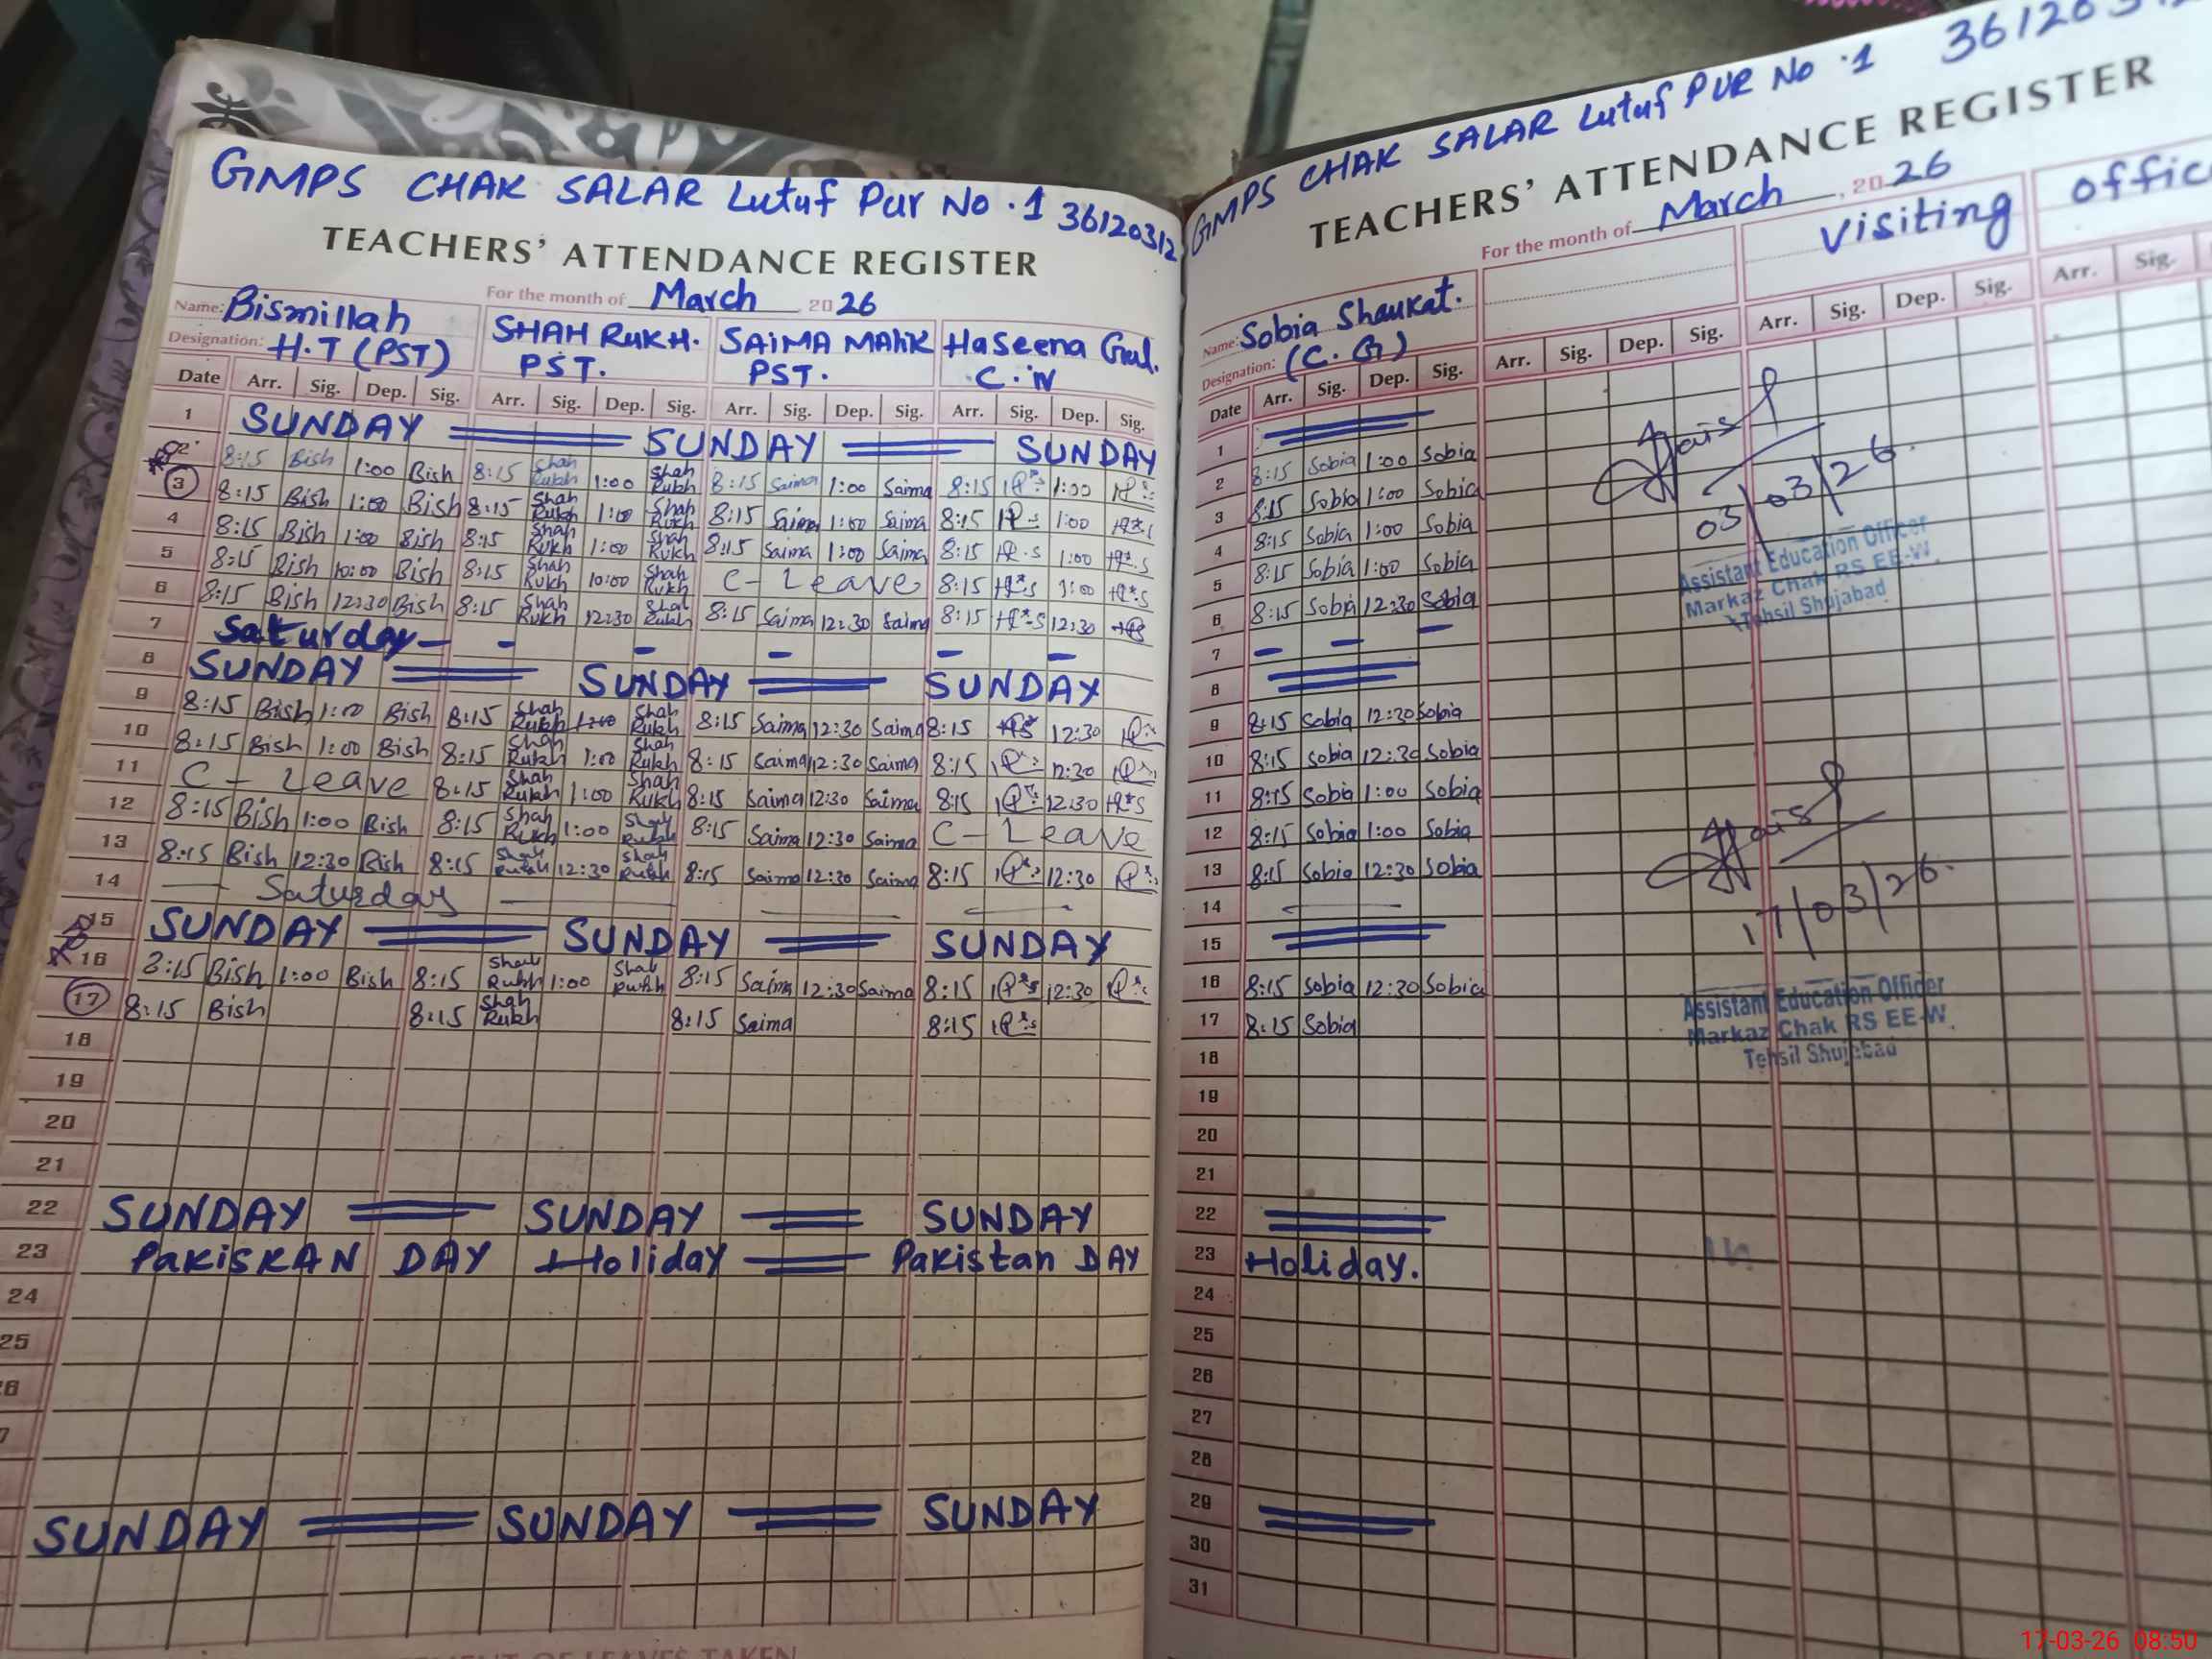 GMPS CHAK SALAR Lutuf Pur No .1 36120312
TEACHERS' ATTENDANCE REGISTER
For the month of March 2026
Name: Bismillah SHAH RUKH. SAIMA MAlIK Haseena Gul.
Designation: H.T (PST) PST. PST. C.N
Date Arr. Sig. Dep. Sig. Arr. Sig. Dep. Sig. Arr. Sig. Dep. Sig. Arr. Sig. Dep. Sig.
1 SUNDAY SUNDAY SUNDAY
2 8:15 Bish 1:00 Bish 8:15 Shah Rukh 1:00 Shah Rukh 8:15 Saima 1:00 Saima 8:15 1:00
3 8:15 Bish 1:00 Bish 8:15 Shah Rukh 1:00 Shah Rukh 8:15 Saima 1:00 Saima 8:15 1:00
4 8:15 Bish 1:00 Bish 8:15 Shah Rukh 1:00 Shah Rukh 8:15 Saima 1:00 Saima 8:15 1:00
5 8:15 Bish 10:00 Bish 8:15 Shah Rukh 10:00 Shah Rukh C-Leave 8:15 1:00
6 8:15 Bish 12:30 Bish 8:15 Shah Rukh 12:30 Shah Rukh 8:15 Saima 12:30 Saima 8:15 12:30
7 Saturday - - - - - -
8 SUNDAY SUNDAY SUNDAY
9 8:15 Bish 1:00 Bish 8:15 Shah Rukh 1:00 Shah Rukh 8:15 Saima 12:30 Saima 8:15 12:30
10 8:15 Bish 1:00 Bish 8:15 Shah Rukh 1:00 Shah Rukh 8:15 Saima 12:30 Saima 8:15 12:30
11 C-Leave 8:15 Shah Rukh 1:00 Shah Rukh 8:15 Saima 12:30 Saima 8:15 12:30
12 8:15 Bish 1:00 Bish 8:15 Shah Rukh 1:00 Shah Rukh 8:15 Saima 12:30 Saima C-Leave
13 8:15 Bish 12:30 Bish 8:15 Shah Rukh 12:30 Shah Rukh 8:15 Saima 12:30 Saima 8:15 12:30
14 Saturday
15 SUNDAY SUNDAY SUNDAY
16 8:15 Bish 1:00 Bish 8:15 Shah Rukh 1:00 Shah Rukh 8:15 Saima 12:30 Saima 8:15 12:30
17 8:15 Bish 8:15 Shah Rukh 8:15 Saima 8:15
18
19
20
21
22 SUNDAY SUNDAY SUNDAY
23 PAKISKAN DAY Holiday Pakistan DAY
24
25
SUNDAY SUNDAY SUNDAY
OF LEAVES TAKEN
GMPS CHAK SALAR Lutuf PUR No .1 361203
TEACHERS' ATTENDANCE REGISTER
For the month of March, 2026
Name: Sobia Shaukat. Visiting Offic
Designation: (C.G)
Date Arr. Sig. Dep. Sig. Arr. Sig. Dep. Sig. Arr. Sig. Dep. Sig. Arr. Sig.
1
2 8:15 Sobia 1:00 Sobia
3 8:15 Sobia 1:00 Sobia
03/03/26.
4 8:15 Sobia 1:00 Sobia
Assistant Education Officer
Markaz Chak RS EE-W
Tehsil Shujabad
5 8:15 Sobia 1:00 Sobia
6 8:15 Sobia 12:30 Sobia
7 - - -
8
9 8:15 Sobia 12:30 Sobia
10 8:15 Sobia 12:30 Sobia
11 8:15 Sobia 1:00 Sobia
12 8:15 Sobia 1:00 Sobia
13 8:15 Sobia 12:30 Sobia
14
17/03/26.
15
16 8:15 Sobia 12:30 Sobia
17 8:15 Sobia
Assistant Education Officer
Markaz Chak RS EE-W
Tehsil Shujabad
18
19
20
21
22
23 Holiday.
24
25
26
27
28
29
30
31
17-03-26 08:50